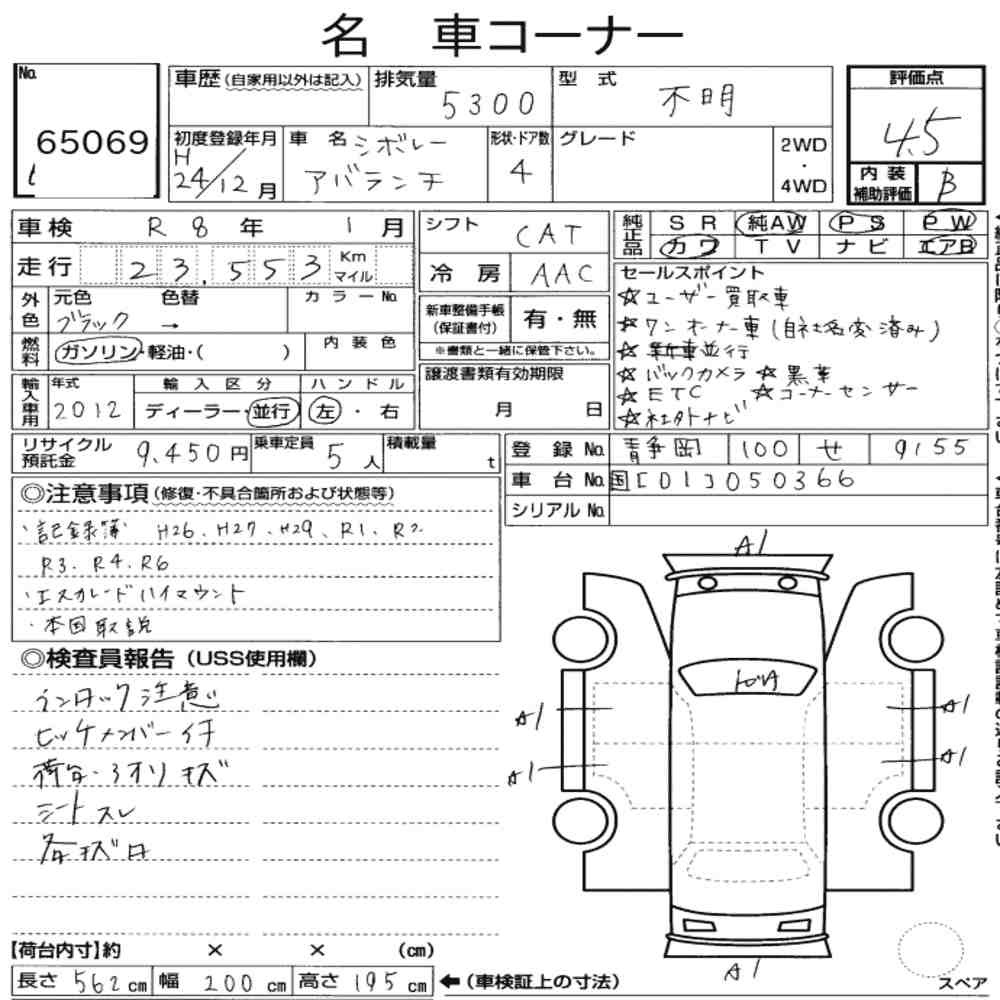 名 車コーナー
No.
65069
車歴(自家用以外は記入)
排気量
5300
型 式
不明
評価点
4.5
初度登録年月
H
24/12月
車 名
シボレー
アバランチ
形状・ドア数
4
グレード
2WD
・
4WD
内 装
補助評価
B
車検 R 8 年 1 月
走行 23,553 Km マイル
シフト CAT
冷 房 AAC
純正品
SR 純AW PS PW
カワ TV ナビ エアB
外色
元色 ブラック
色替 →
カラーNo.
燃料
ガソリン・軽油・( )
内 装 色
新車整備手帳
(保証書付)
有・無
※書類と一緒に保管下さい。
輸入車用
年式 2012
輸 入 区 分
ディーラー・並行
ハ ン ド ル
左 ・ 右
譲渡書類有効期限
月 日
セールスポイント
☆ユーザー買取車
☆ワンオーナー車(自社名変済み)
☆新車並行
☆バックカメラ ☆黒革
☆ETC ☆コーナーセンサー
☆社外ナビ
リサイクル
預託金
9,450円
乗車定員 5人
積載量 t
登 録 No. 静岡 100 せ 9155
車 台 No. 国[01]050366
シリアル No.
◎注意事項(修復・不具合箇所および状態等)
・記録簿 H26、H27、H29、R1、R2
R3、R4、R6
・エスカレードハイマウント
・本国取説
◎検査員報告(USS使用欄)
インロック注意
ヒッチメンバーイチ
荷台・3オリキズ
シートスレ
各キズ凹
A1
A1
A1
A1
A1
A1
【荷台内寸】約 × × (cm)
長さ 562 cm 幅 200 cm 高さ 195 cm
←(車検証上の寸法)
スペア